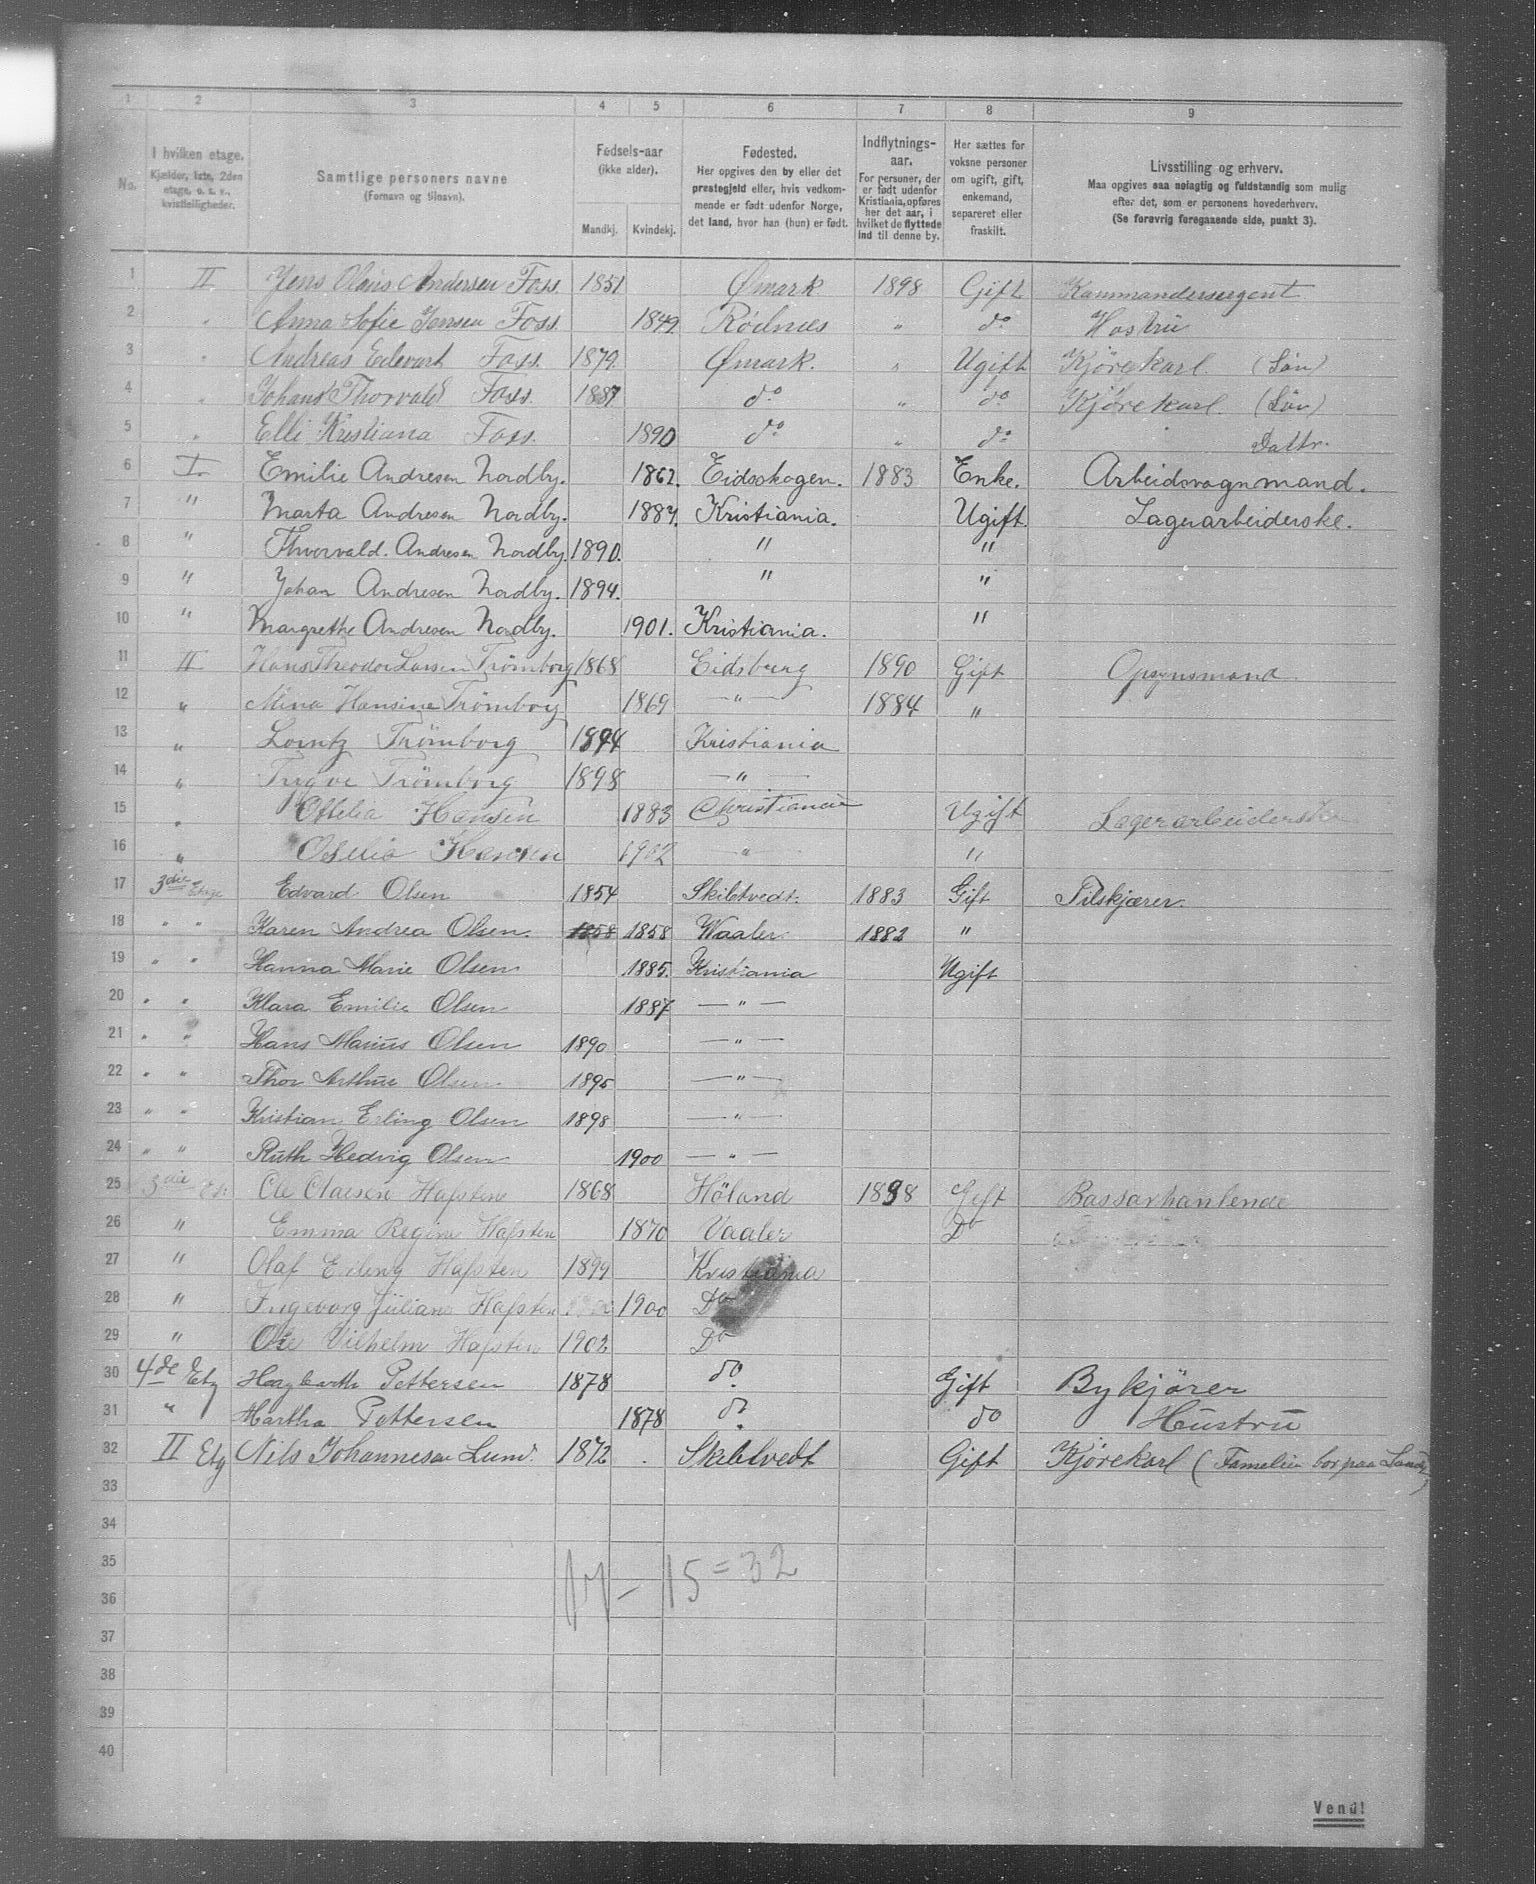 1 2 3 4 5 6 7 8 9
No.
I hvilken etage.
Kjælder, 1ste, 2den
etage, o. s. v.,
kvistleiligheder.
Samtlige personers navne
(Fornavn og tilnavn).
Fødsels-aar
(ikke alder).
Mandkj. Kvindekj.
Fødested.
Her opgives den by eller det
prestegjeld eller, hvis vedkom-
mende er født udenfor Norge,
det land, hvor han (hun) er født.
Indflytnings-
aar.
For personer, der
er født udenfor
Kristiania, opføres
her det aar, i
hvilket de flyttede
ind til denne by.
Her sættes for
voksne personer
om ugift, gift,
enkemand,
separeret eller
fraskilt.
Livsstilling og erhverv.
Maa opgives saa nøiagtig og fuldstændig som mulig
efter det, som er personens hovederhverv.
(Se forøvrig foregaaende side, punkt 3).
1 II Jens Olaus Andersen Foss 1851 Ømark 1898 Gift Kommandersergent
2 " Anna Sofie Jensen Foss. 1849 Rødnæs " do Hustru
3 " Andreas Edevart Foss. 1879 Ømark. " Ugift Kjørekarl. (Søn)
4 " Johans Thorvald Foss. 1887 do " do Kjørekarl. (Søn)
5 " Elli Kristiana Foss. 1890 do " do Dattr.
6 I. Emilie Andresen Nordby. 1862. Eidsskogen. 1883 Enke. Arbeidsvognmand.
7 " Marta Andresen Nordby. 1887. Kristiania. Ugift. Lagerarbeiderske.
8 " Thvorvald. Andresen Nordby. 1890. " "
9 " Johan Andresen Nordby. 1894. " "
10 " Margrethe Andresen Nordby. 1901. Kristiania. "
11 II Hans Theodor Larsen Trömborg 1868 Eidsberg 1890 Gift Opsynsmand
12 " Mina Hansine Trömborg 1869 — " — 1884 "
13 " Lorntz Trömborg 1894 Kristiania
14 " Trygve Trömborg 1898 — " —
15 " Ottelia Hansen 1883 Christiania Ugift Lagerarbeiderske
16 " Hansen 1902 " "
17 3die Etage Edvard Olsen 1854 Skibtvedt. 1883 Gift Pilskjærer.
18 " " Karen Andrea Olsen. 1858 1858 Waaler. 1882 "
19 " " Hanna Marie Olsen 1885. Kristiania Ugift
20 " " Klara Emilie Olsen 1887 — " —
21 " " Hans Marius Olsen 1890 — " —
22 " " Thor Arthur Olsen 1895 — " —
23 " " Kristian Erling Olsen 1898 — " —
24 " " Ruth Hedvig Olsen 1900 — " —
25 3die Et. Ole Olaesen Hafsten 1868 Höland 1898 Gift Bassarhantende
26 " Emma Regine Hafsten 1870 Vaaler Do
27 " Olaf Erling Hafsten 1899 Kristiania
28 " Ingeborg Juliane Hafsten 1900 Do
29 " Ole Vilhelm Hafsten 1902 Do
30 4de Etg Hagbarth Pettersen 1878 do. Gift Bykjörer
31 " Martha Pettersen 1878 do. do Hustru
32 II Etg Nils Johannesen Lund. 1872 . Skibtvedt Gift Kjørekarl (Famelien bor paa Landet)
33
34
35
36
37
38
39
40
17 – 15 = 32
Vend!